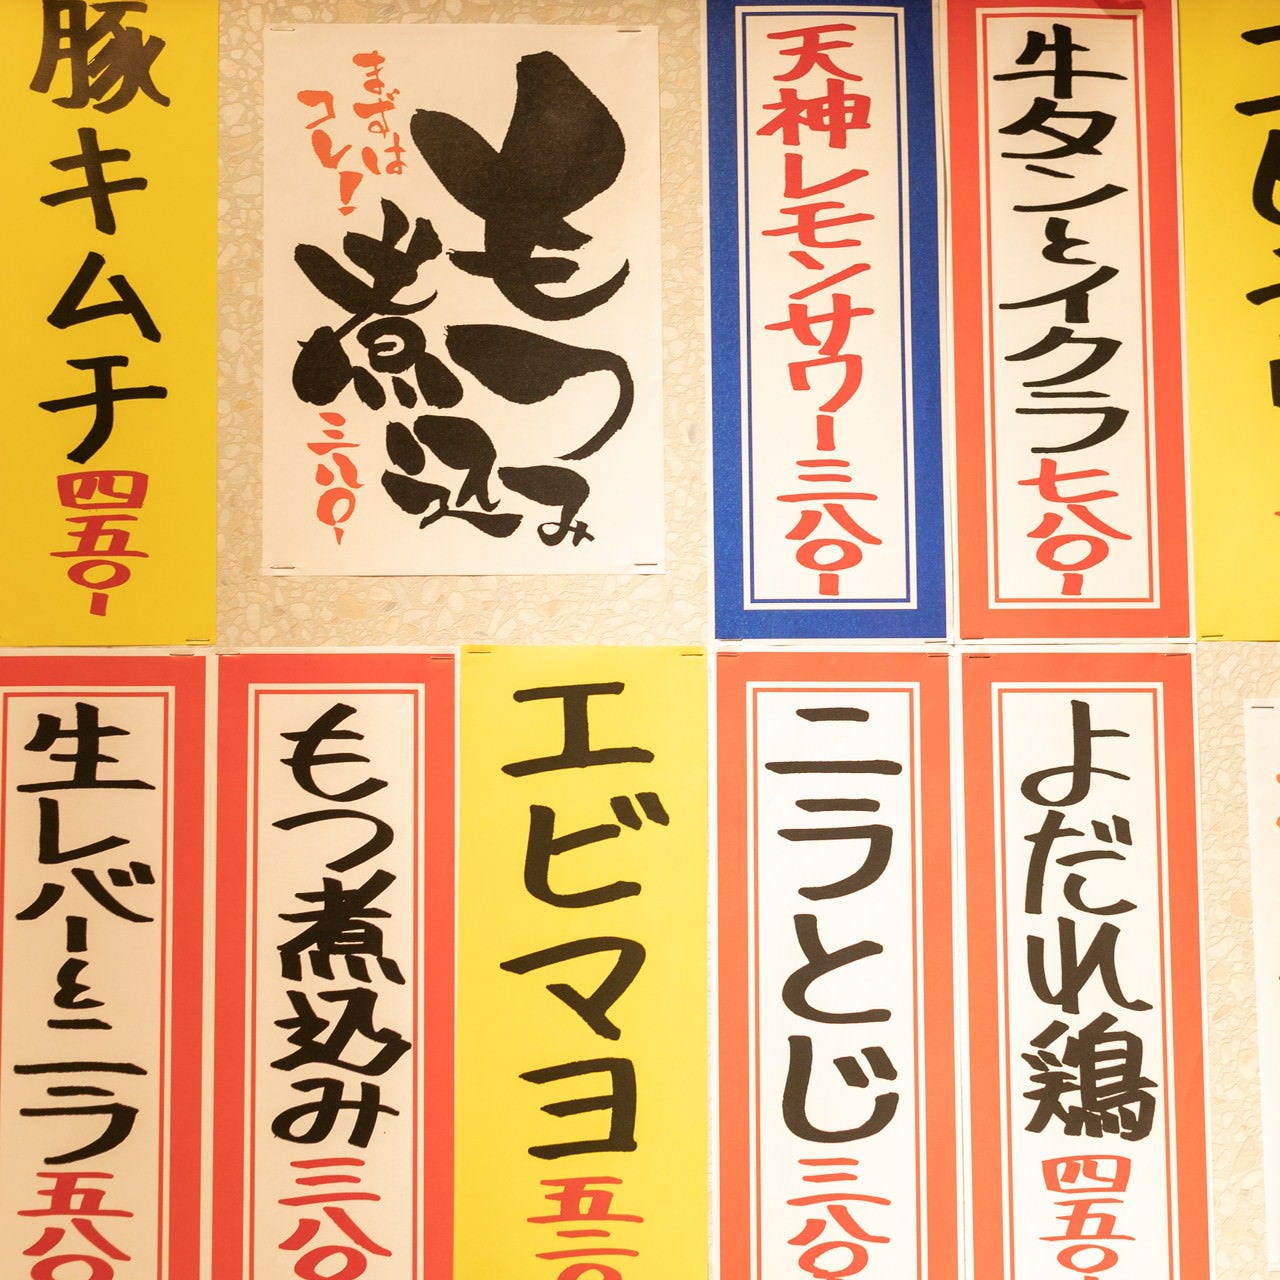 豚キムチ
四五〇-
まずは
コレ!
もつ
煮込み
三八〇-
天神レモンサワー三八〇-
牛タンとイクラ七八〇-
生レバーとニラ
五八〇
もつ煮込み
三八〇
エビマヨ
五二〇
ニラとじ
三八〇-
よだれ鶏
四五〇-